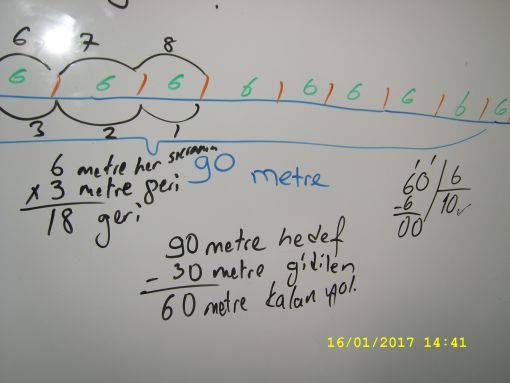 6 7 8
6 6 6 6 6 6 6 6 6
3 2 1
6 metre her sıçrama
x 3 metre geri
18 geri
90 metre
60 6
-6 10
00
90 metre hedef
- 30 metre gidilen
60 metre kalan yol.
16/01/2017 14:41